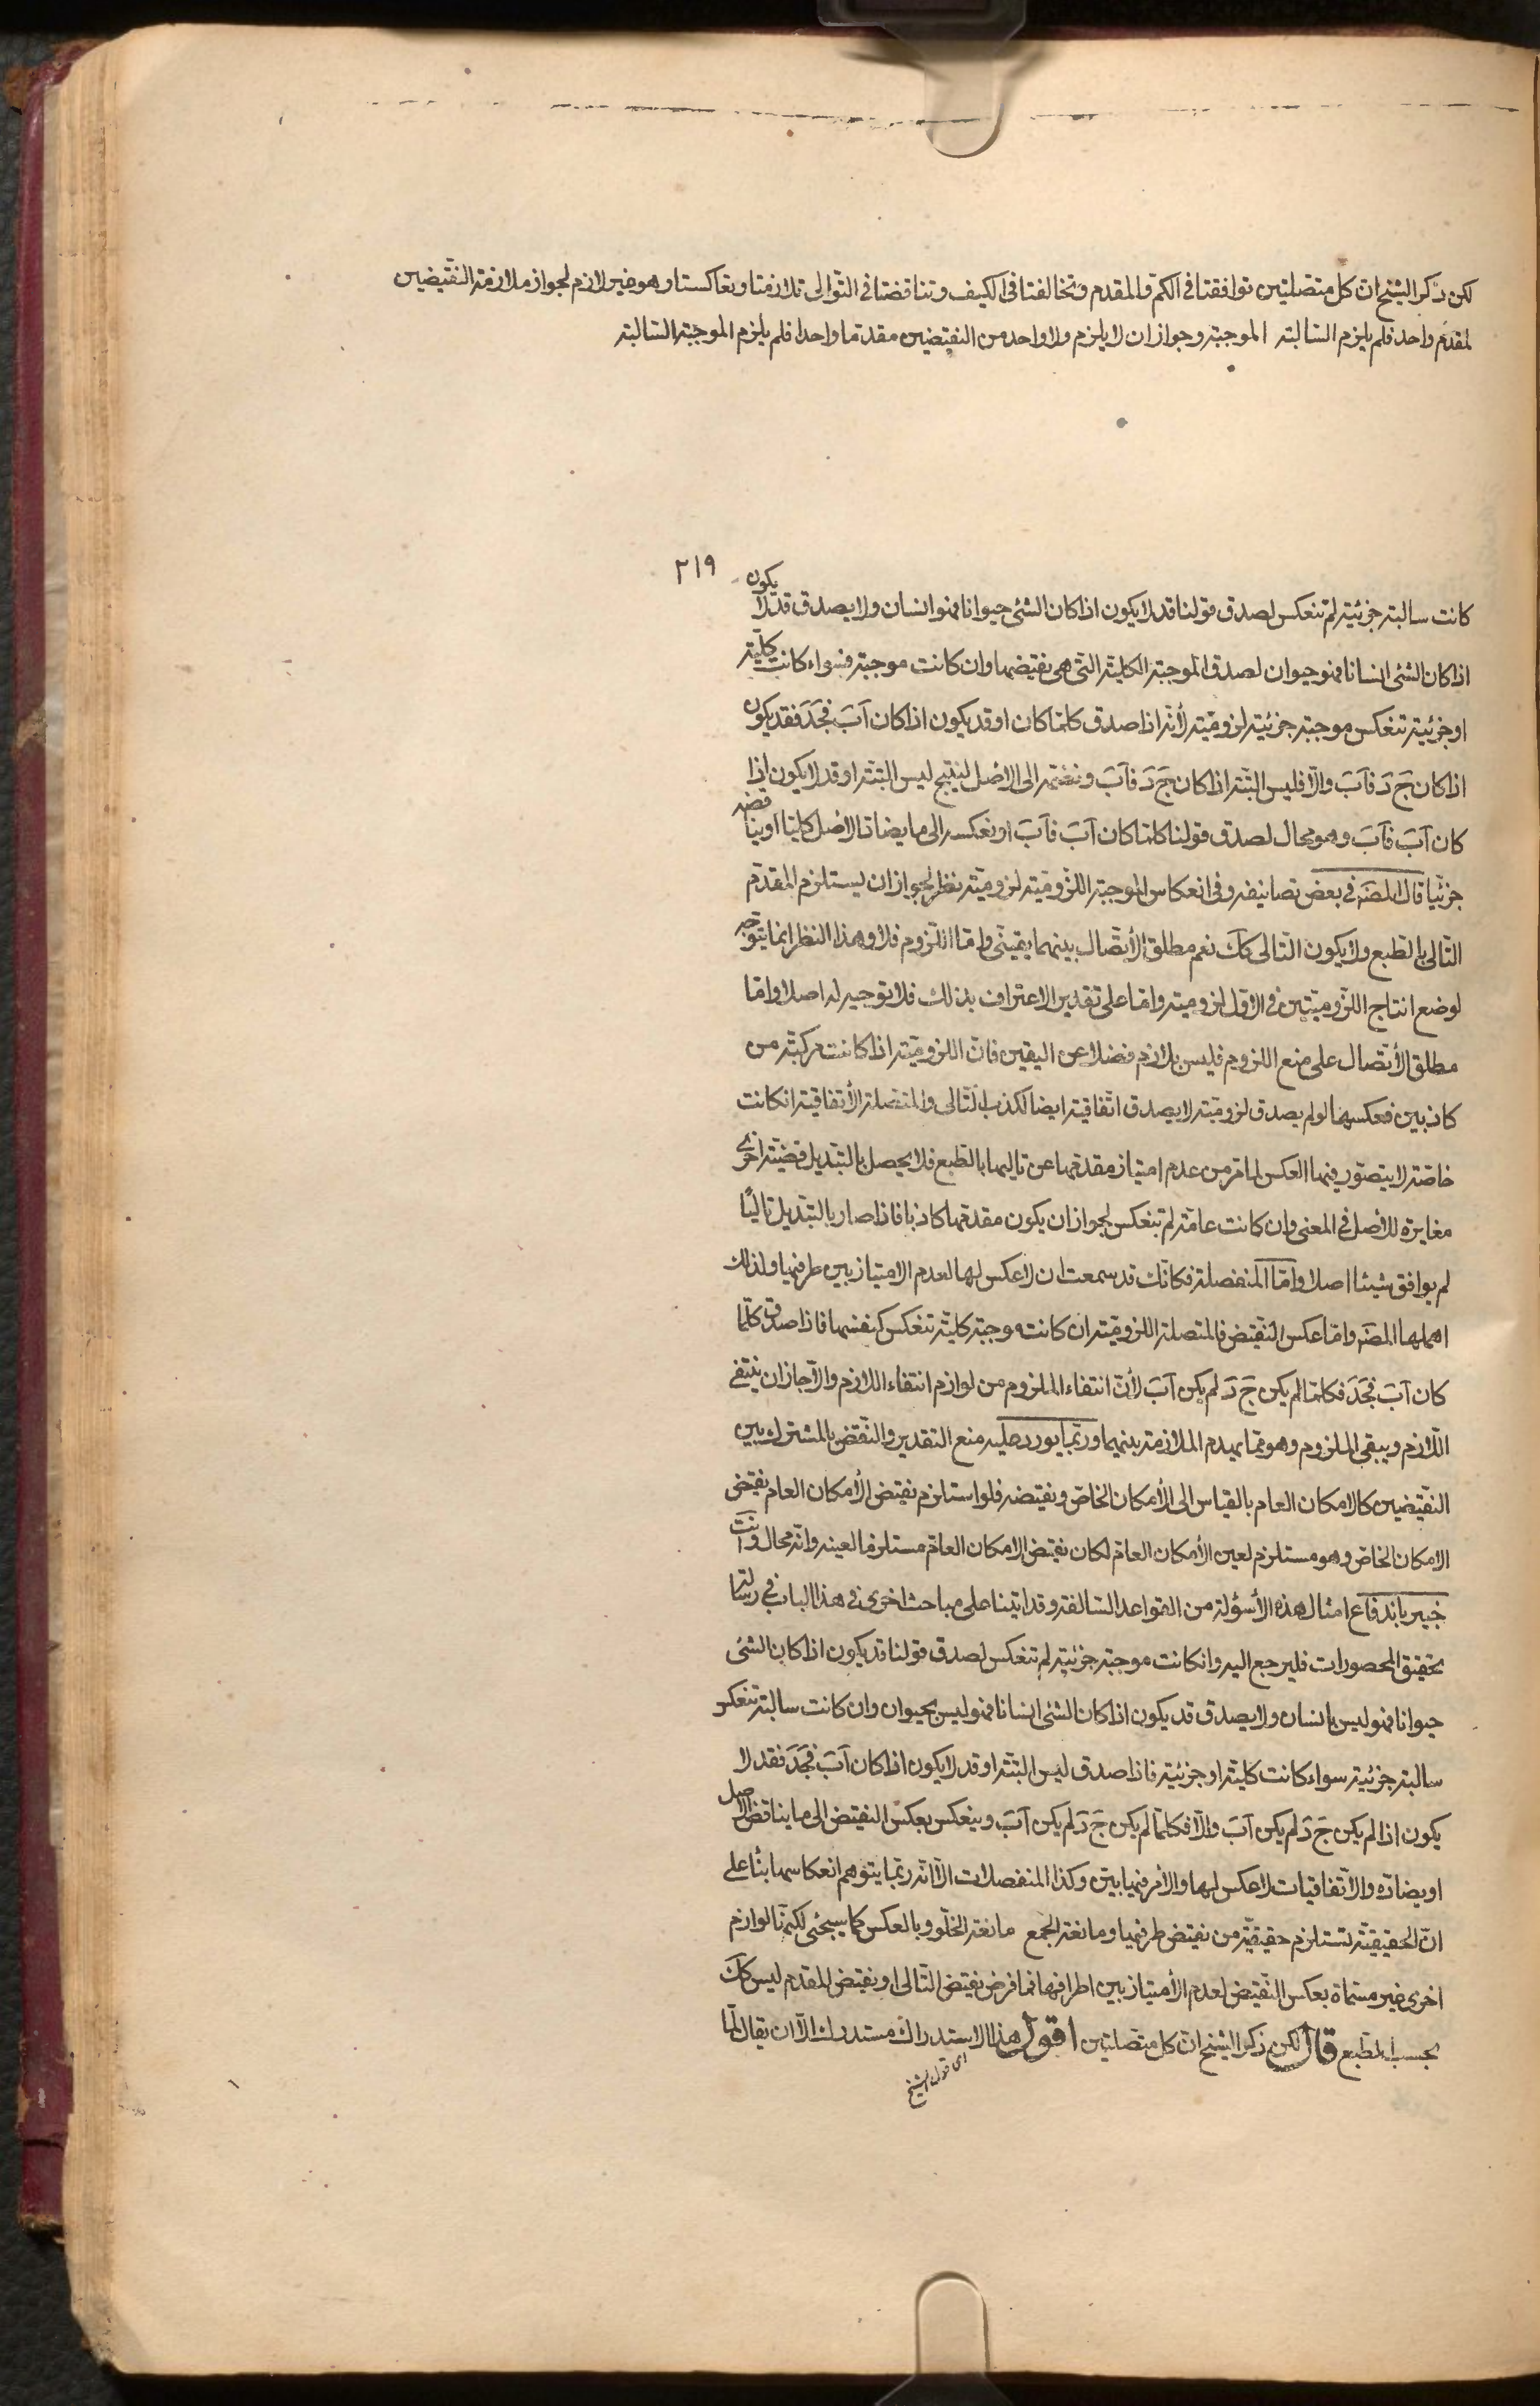 لكن ذكر الشيخ ان كل متصلتين توافقتا فى الكم والمقدم وتخالفتا فى الكيف وتناقضتا فى التوالى تلازمتا وتعاكستا وهو غير لازم لجواز ملازمة النقيضين
لمقدم واحد فلم يلزم السالبة الموجبة وجواز ان لا يلزم ولا واحد من النقيضين مقدما واحدا فلم يلزم الموجبة السالبة
٢١٩
كانت سالبة جزئية لم تنعكس لصدق قولنا قد لا يكون اذا كان الشئ حيوانا فهو انسان ولا يصدق قد لا يكون
اذا كان الشئ انسانا فهو حيوان لصدق الموجبة الكلية التى هى نقيضها وان كانت موجبة فسواء كانت كلية
او جزئية تنعكس موجبة جزئية لزومية لأنه اذا صدق كلما كان او قد يكون اذا كان آب فجد فقد يكون
اذا كان ج د فآب والّا فليس البتة اذا كان ج د فآب ونضمه الى الاصل لينتج ليس البتة او قد لا يكون اذا
كان آب فآب وهو محال لصدق قولنا كلما كان آب فآب او نعكسه الى ما يضاد الاصل كليا او يناقضه
جزئيّا قال المصنه فى بعض تصانيفه وفى انعكاس الموجبة اللزومية لزومية نظر لجواز ان يستلزم المقدم
التالى بالطبع ولا يكون التالى كك نعم مطلق الأتصال بينهما يقينى واما اللزوم فلا وهذا النظر انما يتوجه
لوضع انتاج اللزوميتين فى الاول لزومية واما على تقدير الاعتراف بذلك فلا توجيه له اصلا واما
مطلق الأتصال على منع اللزوم فليس بلازم فضلا عن اليقين فان اللزومية اذا كانت مركبة من
كاذبين فعكسها لو لم يصدق لزومية لا يصدق اتفاقية ايضا لكذب التالى والمتصلة الأتفاقية انكانت
خاصة لا يتصور فيها العكس لما مر من عدم امتياز مقدمها عن تاليها بالطبع فلا يحصل بالتبديل قضية اخرى
مغايرة للاصل فى المعنى وان كانت عامة لم تنعكس لجواز ان يكون مقدمها كاذبا فاذا صار بالتبديل تاليًا
لم يوافق شيئا اصلا واما المنفصلة فكانك قد سمعت ان لا عكس لها لعدم الامتياز بين طرفيها ولذلك
اهملها المصنه واما عكس النقيض فالمتصلة اللزومية ان كانت موجبة كلية تنعكس كنفسها فاذا صدق كلما
كان آب فجد فكلما لم يكن ج د لم يكن آب لأن انتفاء الملزوم من لوازم انتفاء اللازم والّا جاز ان ينتفى
اللازم ويبقى الملزوم وهو مما يهدم الملازمة بينهما وربما يورد عليه منع التقدير والنقض بالمشترك بين
النقيضين كالامكان العام بالقياس الى الأمكان الخاص ونقيضه فلو استلزم نقيض الأمكان العام نقيض
الامكان الخاص وهو مستلزم لعين الأمكان العام لكان نقيض الامكان العام مستلزما لعينه وانه محال وانت
خبير باندفاع امثال هذه الأسؤلة من القواعد السالفة وقد اتينا على مباحث اخرى فى هذا الباب فى رسالة
تحقيق المحصورات فليرجع اليه وانكانت موجبة جزئية لم تنعكس لصدق قولنا قد يكون اذا كان الشئ
حيوانا فهو ليس بانسان ولا يصدق قد يكون اذا كان الشئ انسانا فهو ليس بحيوان وان كانت سالبة تنعكس
سالبة جزئية سواء كانت كلية او جزئية فاذا صدق ليس البتة او قد لا يكون اذا كان آب فجد فقد لا
يكون اذا لم يكن ج د لم يكن آب والّا فكلما لم يكن ج د لم يكن آب وينعكس بعكس النقيض الى ما يناقض الاصل
او يضاده والاتفاقيات لا عكس لها والأمر فيها بين وكذا المنفصلات الّا انه ربما يتوهم انعكاسها بناء على
ان الحقيقية تستلزم حقيقية من نقيض طرفيها ومانعة الجمع مانعة الخلو وبالعكس كما سيجئ لكنها لوازم
اخرى غير مسماة بعكس النقيض لعدم الأمتياز بين اطرافها فما فرض نقيض التالى او نقيض المقدم ليس كك
بحسب الطبع قال لكن ذكر الشيخ ان كل متصلتين اقول هذا الاستدراك مستدرك الّا ان يقال لما
اى قول الشيخ